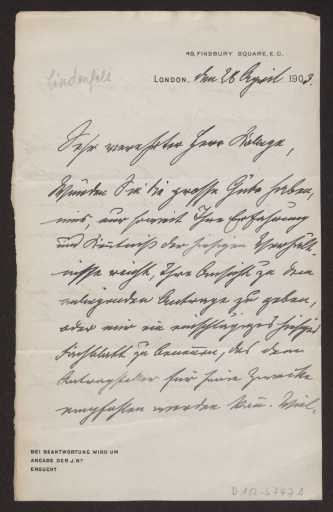 49, FINSBURY SQUARE, E.C.
Lindenfels
LONDON, den 28 April 1903.
Sehr verehrter Herr Kollege,
Würden Sie die grosse Güte haben,
mir, nur soweit Ihre Erfahrung
und Kenntniss der hiesigen Verhält-
nisse reicht, Ihre Ansicht zu dem
anliegenden Antrage zu geben,
oder mir ein einschlägiges hiesiges
Fachblatt zu benennen, das dem
Antragsteller für seine Zwecke
empfohlen werden kann. Viel-
BEI BEANTWORTUNG WIRD UM
ANGABE DER J. Nº
ERSUCHT